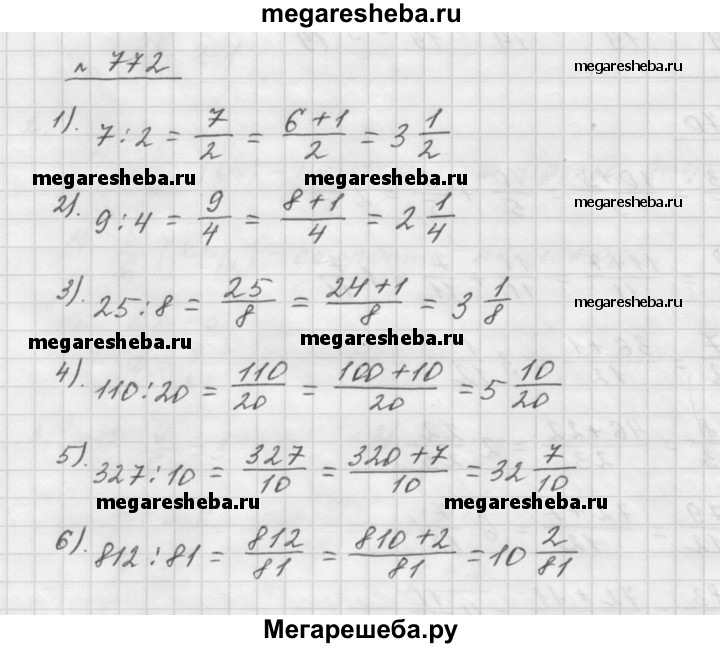 megaresheba.ru
№ 772
megaresheba.ru
1). 7 : 2 = 7/2 = (6 + 1)/2 = 3 1/2
megaresheba.ru megaresheba.ru
2). 9 : 4 = 9/4 = (8 + 1)/4 = 2 1/4
megaresheba.ru
3). 25 : 8 = 25/8 = (24 + 1)/8 = 3 1/8
megaresheba.ru
megaresheba.ru megaresheba.ru
4). 110 : 20 = 110/20 = (100 + 10)/20 = 5 10/20
5). 327 : 10 = 327/10 = (320 + 7)/10 = 32 7/10
megaresheba.ru megaresheba.ru
6). 812 : 81 = 812/81 = (810 + 2)/81 = 10 2/81
Мегарешеба.ру